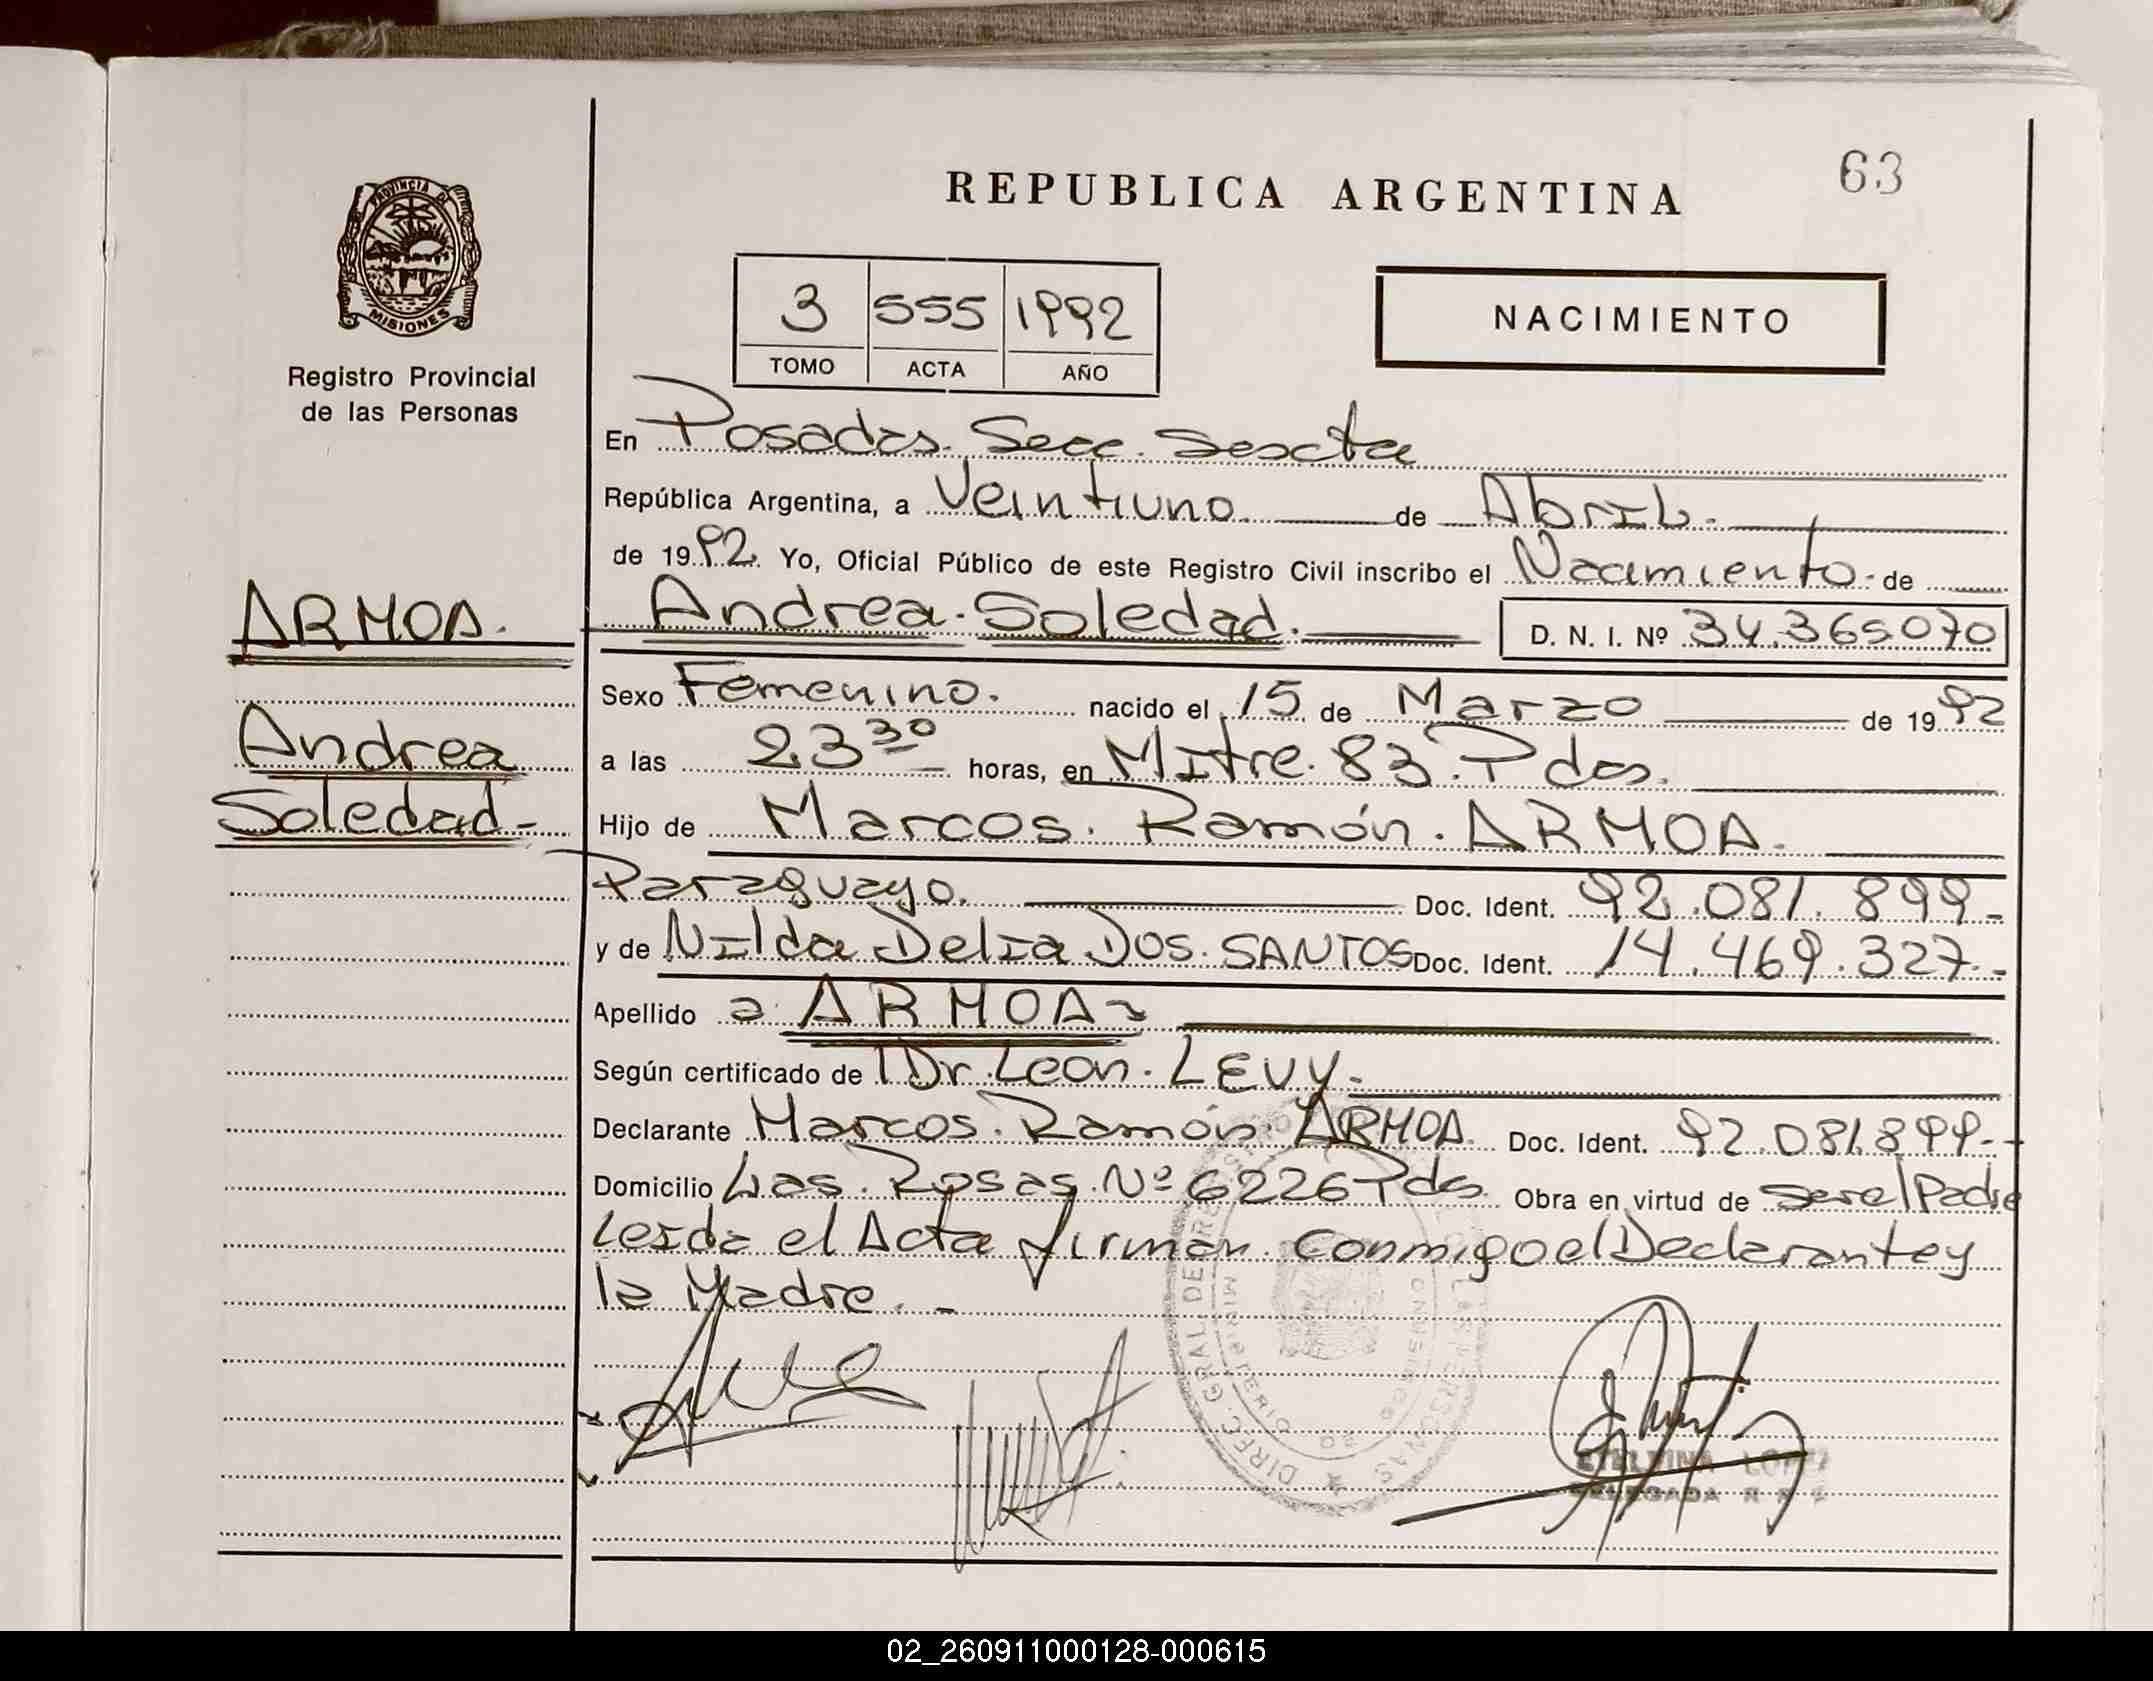 63
REPUBLICA ARGENTINA
PROVINCIA DE
MISIONES
Registro Provincial
de las Personas
3 555 1992
TOMO ACTA AÑO
NACIMIENTO
En Posadas. Secc. Sescta
República Argentina, a Veintiuno. de Abril.
de 1992. Yo, Oficial Público de este Registro Civil inscribo el Nacimiento. de
ARMOA.
Andrea
Soledad-
Andrea. Soledad. D. N. I. Nº 34.365070
Sexo Femenino. nacido el 15 de Marzo de 1992
a las 23 30 horas, en Mitre. 83. Pdas.
Hijo de Marcos. Ramón. ARMOA.
Paraguayo. Doc. Ident. 92.081.899-
y de Nilda Delia Dos. SANTOS Doc. Ident. 14.469.327.-
Apellido a ARMOA
Según certificado de Dr. Leon. LEVY.
Declarante Marcos. Ramón. ARMOA. Doc. Ident. 92.081.899.-
Domicilio Las. Rosas. Nº 6226 Pdas. Obra en virtud de ser el Padre
Leida el Acta firman. Conmigo el Declarante y
la Madre. -
DIREC. GRAL. DE
02_260911000128-000615